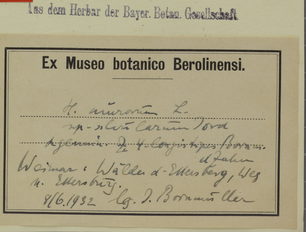 Aus dem Herbar der Bayer. Botan. Gesellschaft
Ex Museo botanico Berolinensi.
H. murorum L.
ssp. silvularum Jord
Weimar: Wälder d. Ettersberg, Weg
n. Ettersburg.
4/6.1932 lg. J. Bornmüller